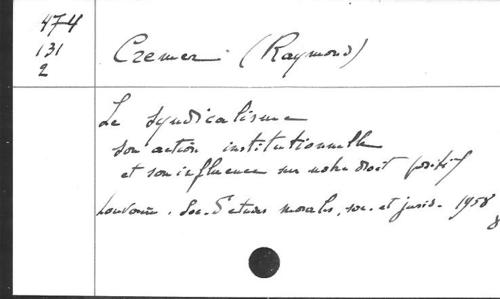 474
131
2
Cremer (Raymond)
Le syndicalisme
son action institutionnelle
et son influence sur notre droit positif
Louvain. Soc. d'études morales, soc. et jurid. 1958
8